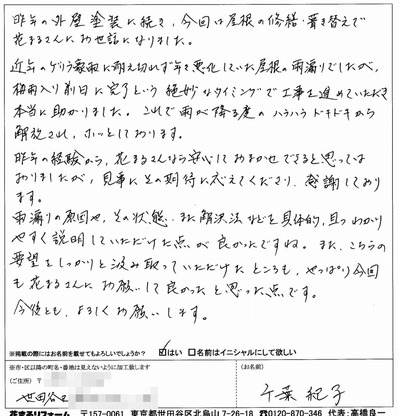 昨年の外壁塗装に続き、今回は屋根の修繕・葺き替えで
花まるさんにお世話になりました。
近年のゲリラ豪雨に耐え切れず年々悪化していた屋根の雨漏りでしたが、
梅雨入り前日に完了という絶妙なタイミングで工事を進めていただき
本当に助かりました。これで雨が降る度のハラハラドキドキから
解放され、ホッとしております。
昨年の経験から、花まるさんなら安心しておまかせできると思っては
おりましたが、見事にその期待に応えてくださり、感謝しており
ます。
雨漏りの原因や、その状態・また解決法などを具体的、且つわかり
やすく説明していただけた点が良かったですね。また、こちらの
要望をしっかりと汲み取っていただけたところも、やっぱり今回
も花まるさんにお願いして良かったと思った点です。
今後とも、よろしくお願いします。
※掲載の際にはお名前を載せてもよろしいでしょうか? ☑はい □名前はイニシャルにして欲しい
※市・区以降の町名・番地は見えないように加工致します
(ご住所) 〒
世田谷区
(お名前)
千葉 紀子
花まるリフォーム 〒157-0061 東京都世田谷区北烏山7-26-18 0120-870-346 代表:高橋良一